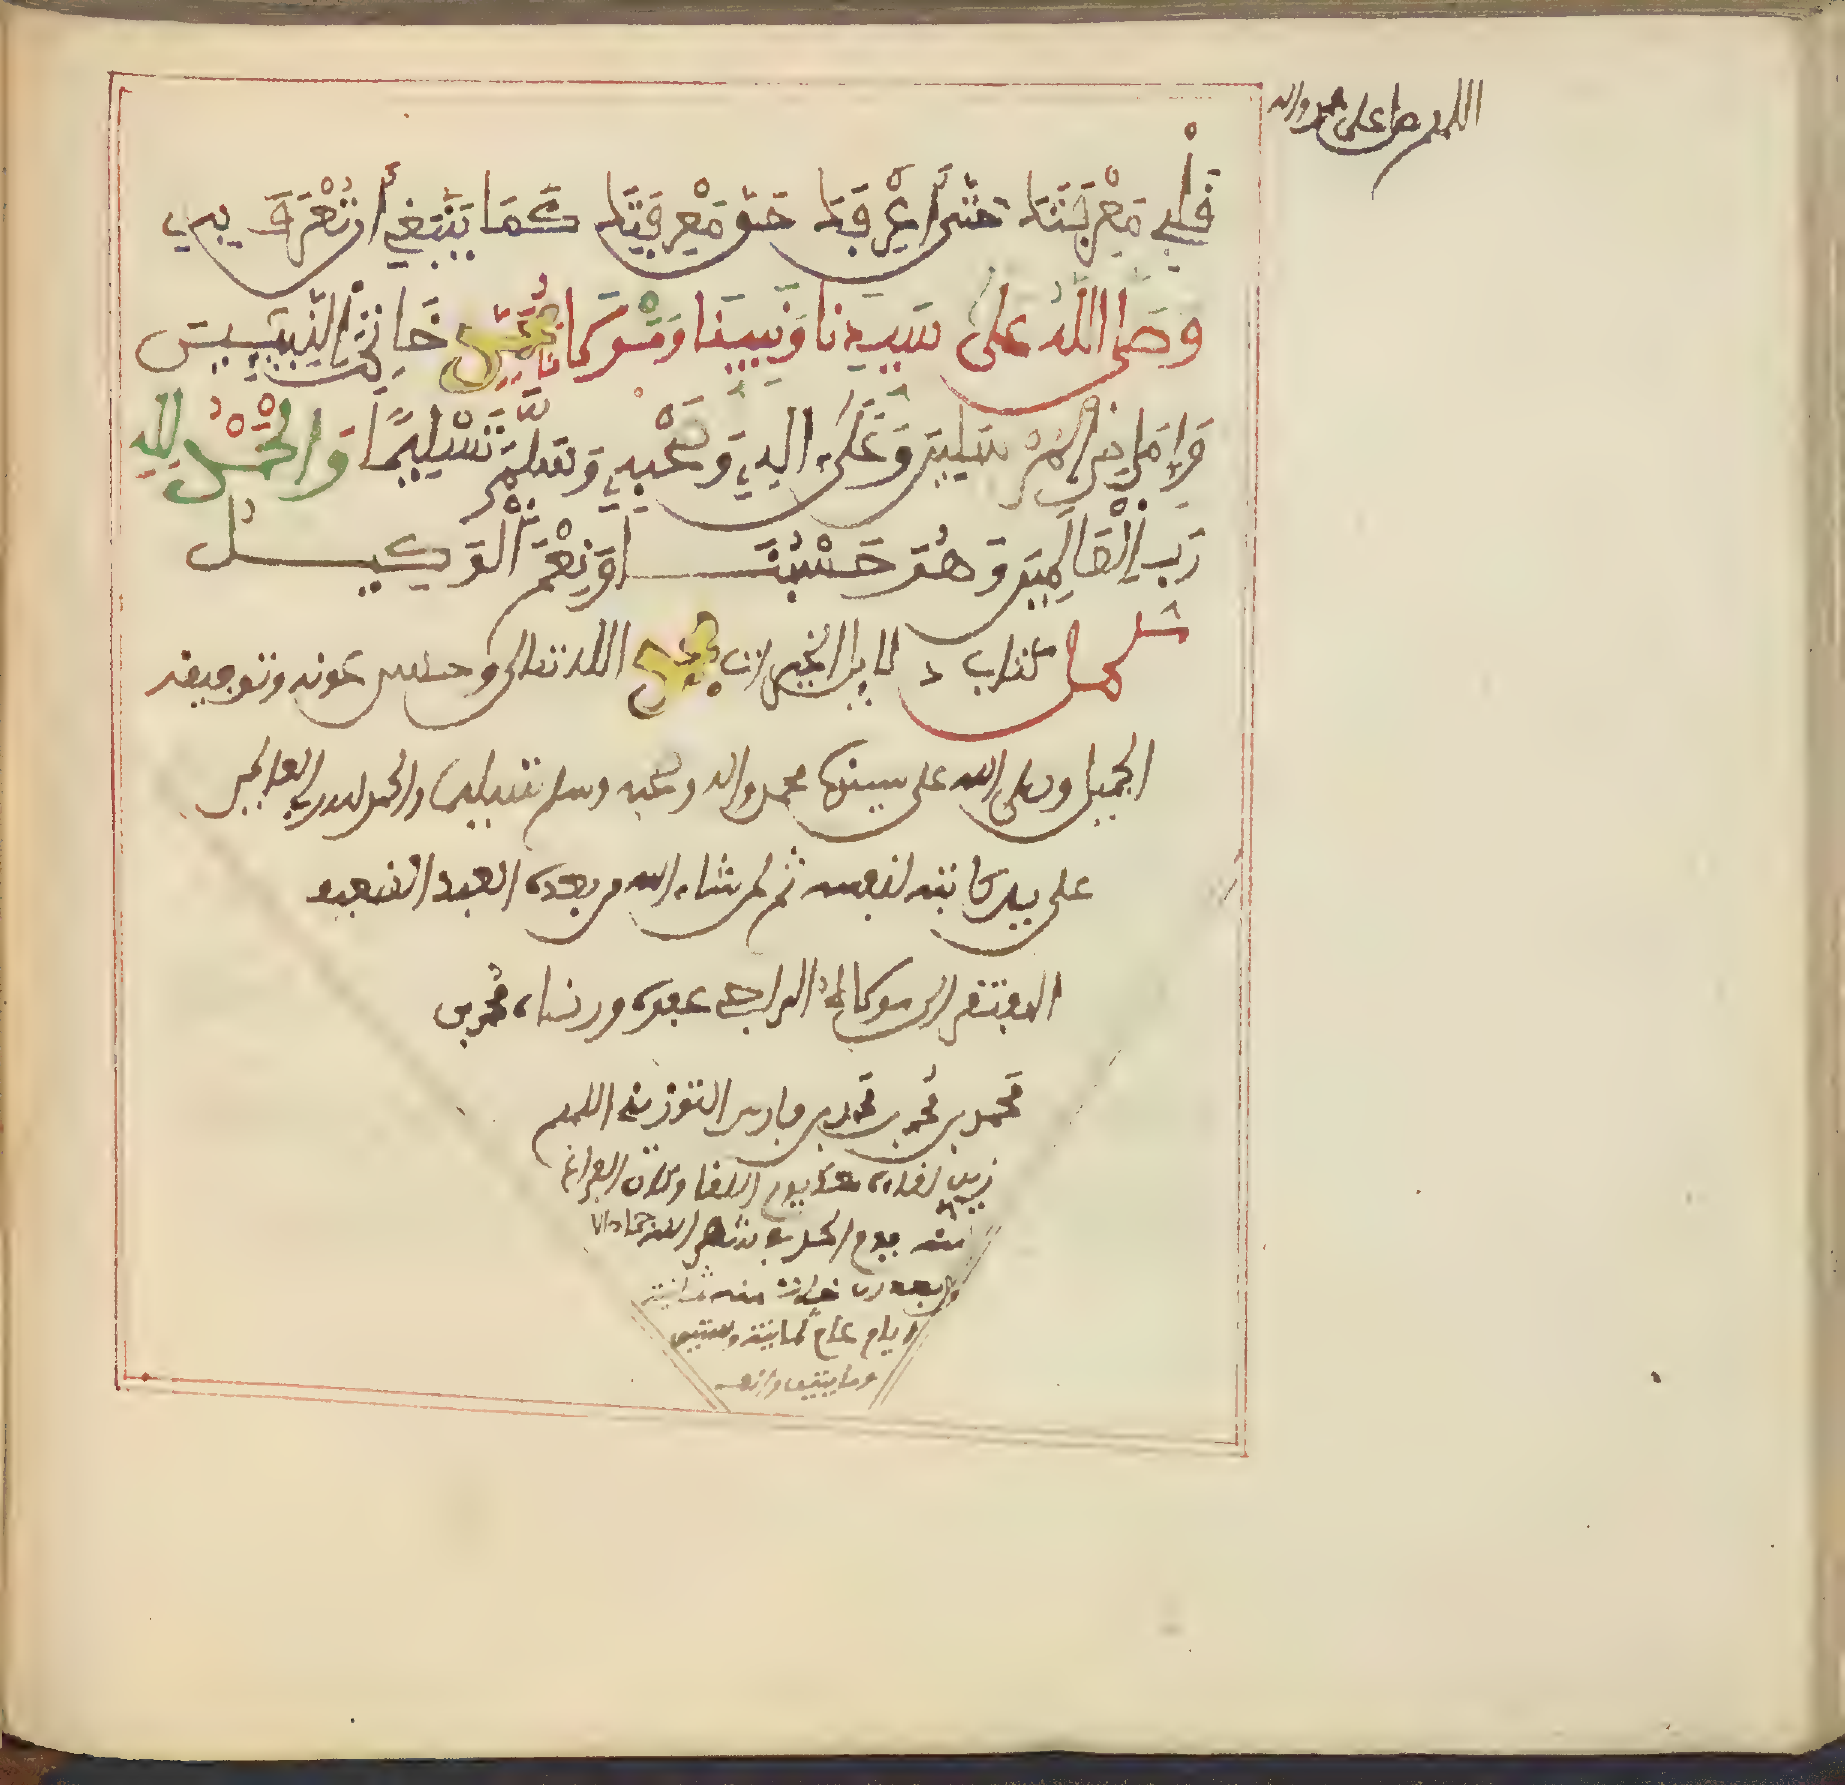 اللهم صل على محمد واله
قَلْبِي مَعْرِفَتَكَ حَتَّى أَعْرِفَكَ حَقَّ مَعْرِفَتِكَ كَمَا يَنْبَغِي أَنْ تُعْرَفَ بِهِ
وصلى اللهُ على سيدنا ونبينا ومولانا مُحَمَّدٍ خَاتِمِ النَّبِيِّينَ
وَإِمَامِ الْمُرْسَلِينَ وَعَلَى ءالِهِ وَصَحْبِهِ وَسَلَّمَ تَسْلِيمًا وَالحَمْدُ لِلهِ
رَبِّ الْعَالَمِينَ وَهُوَ حَسْبُنَا وَنِعْمَ الْوَكِيلُ
كمل كتاب دلايل الخيرات بحمد الله تعالى وحسن عونه وتوفيقه
الجميل وصلى الله على سيدنا محمد واله وصحبه وسلم تسليما والحمد لله رب العالمين
على يد كاتبه لنفسه ثم لمن شاء الله من بعده العبد الضعيف
المفتقر الى مولاه الراجي عفوه ورضاه محمد بن
محمد بن محمد بن محمد بن فارس التوزيني اللهم
الفراغ
منه يوم الاحد في شهر الله جماد
خلت منه ثمانية
ايام عام ثمانية وستين
ومايتين والف